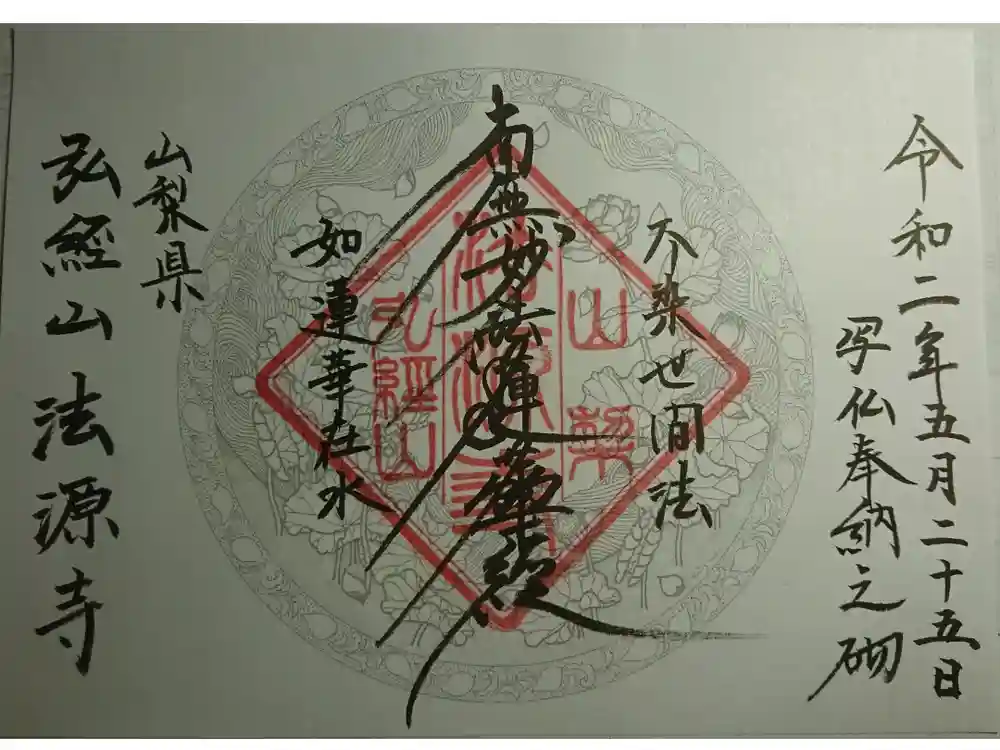 令和二年五月二十五日
写仏奉納之砌
不染世間法
南無妙法蓮華経
如蓮華在水
山梨県
弘経山法源寺
山梨
法源寺
弘経山